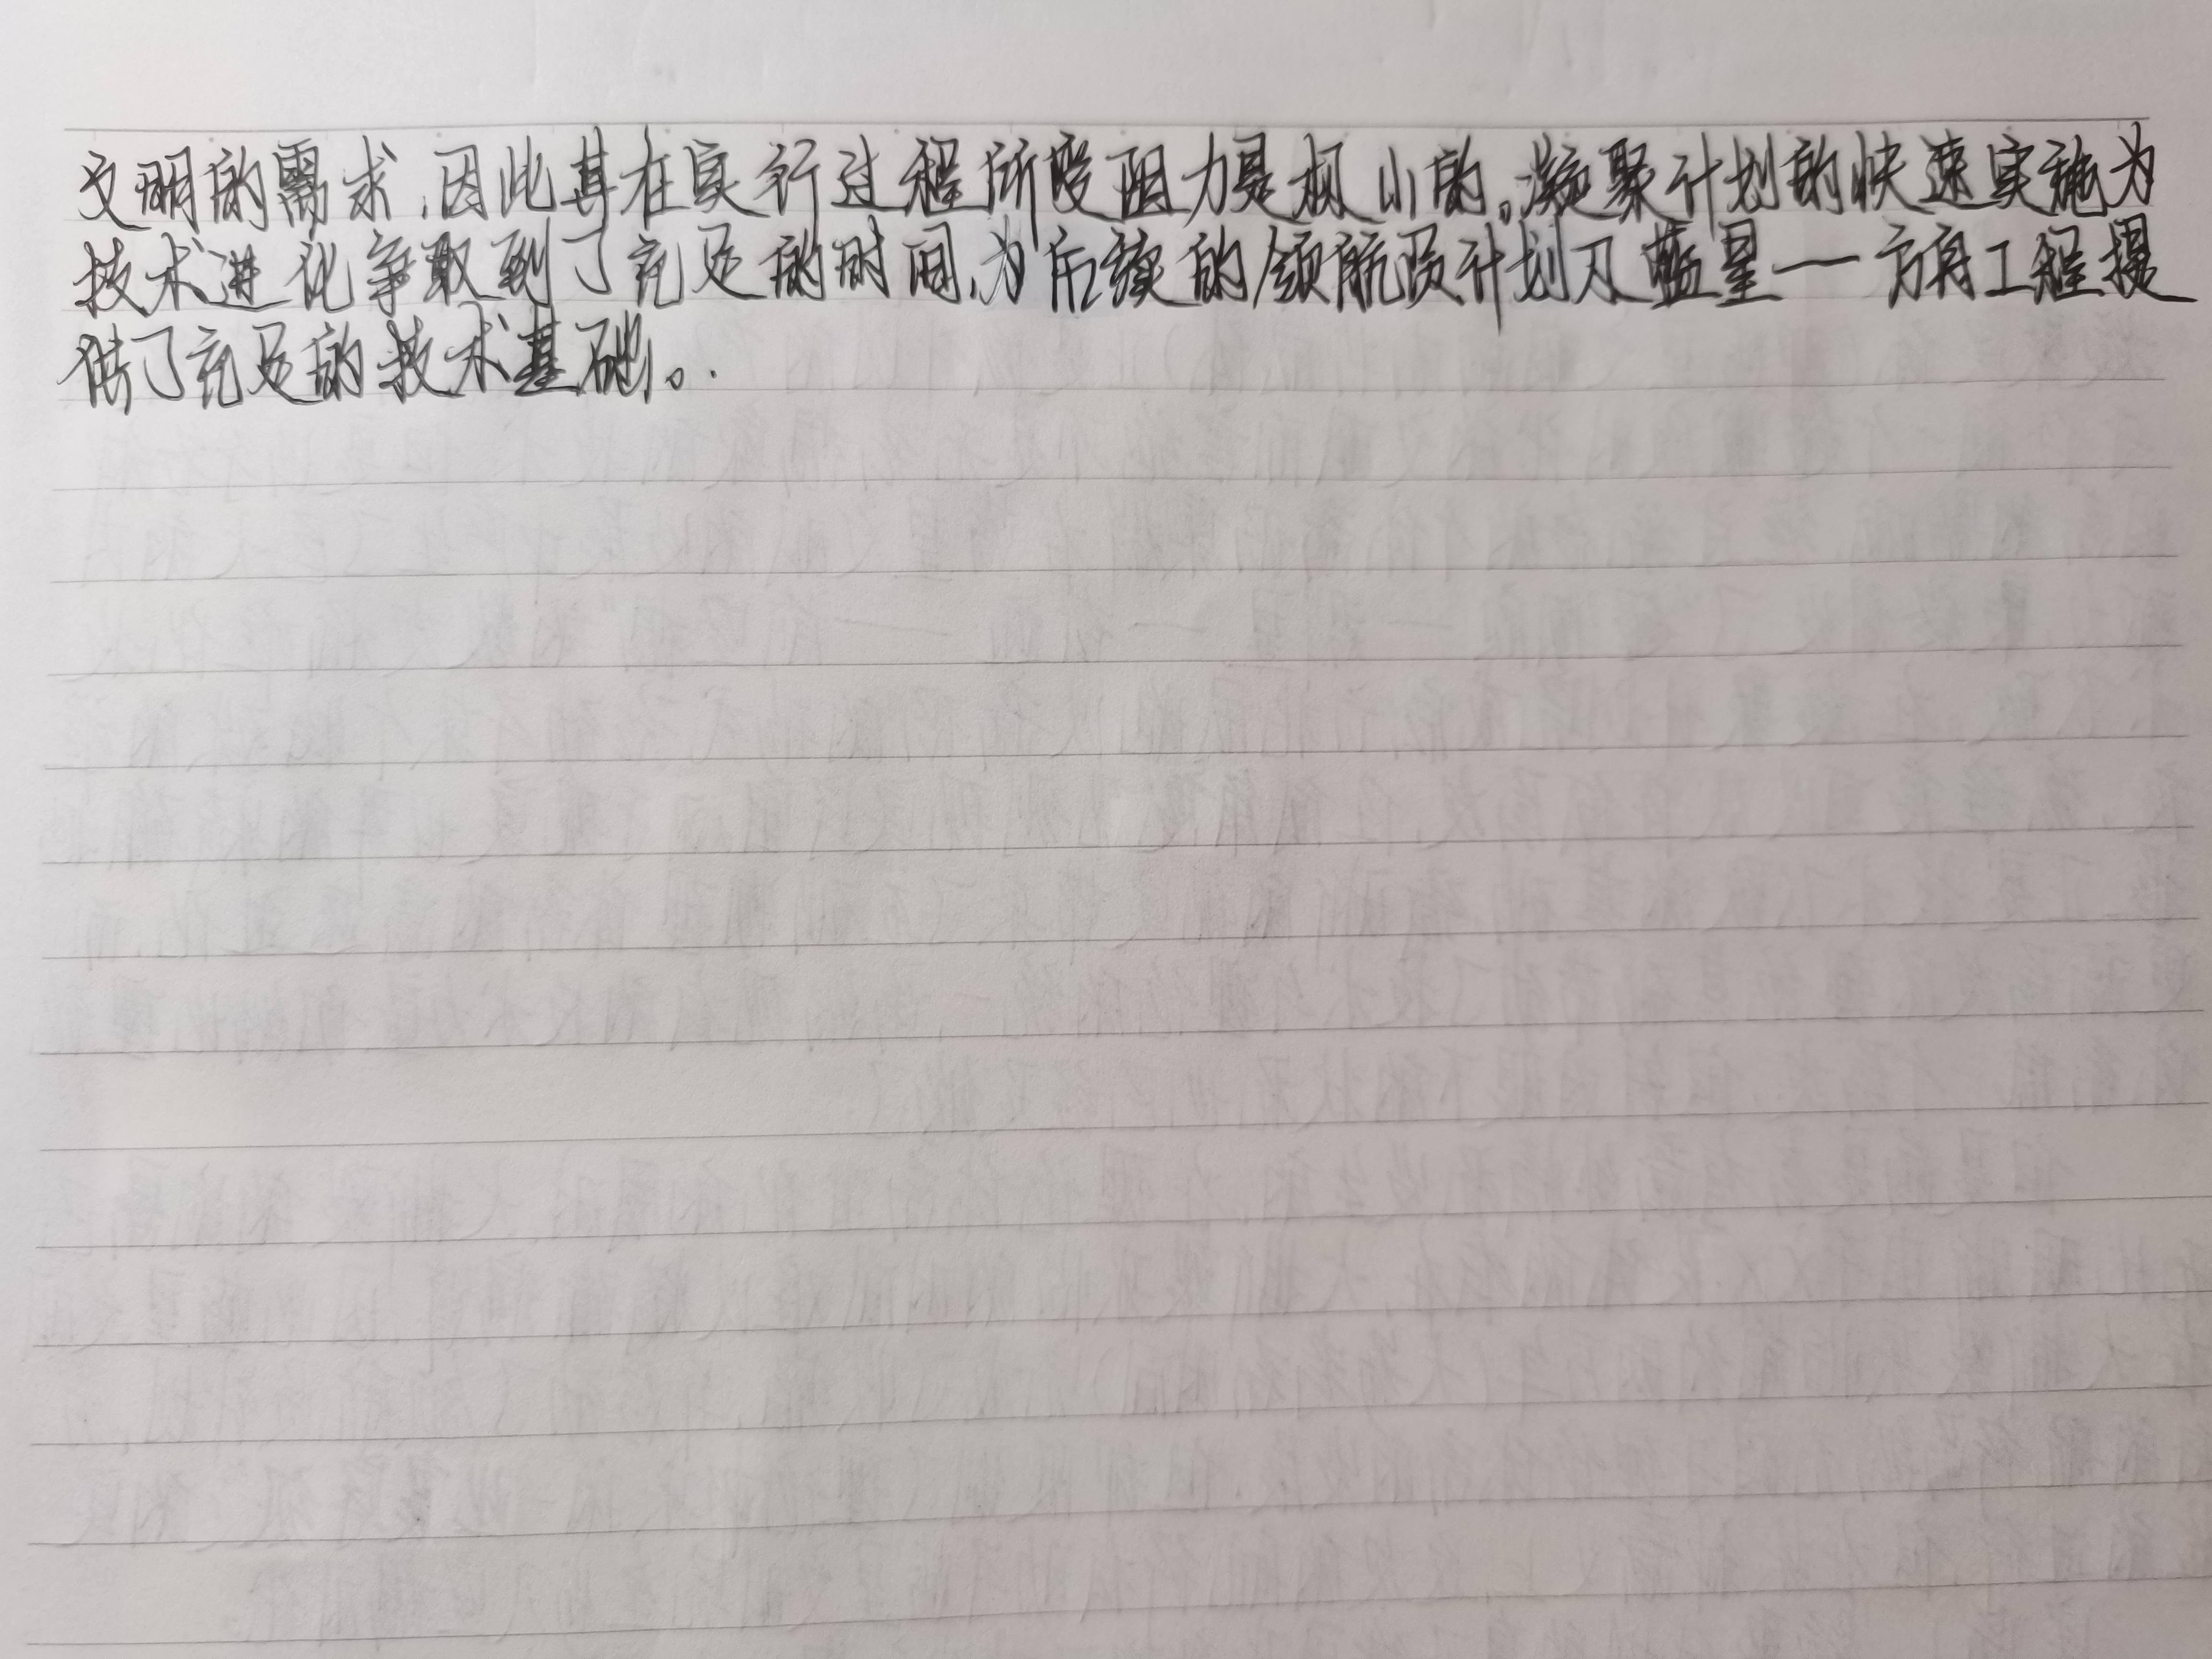 文明的需求,因此其在实行过程所受阻力是极小的。凝聚计划的快速实施为
技术进化争取到了充足的时间,为后续的领航员计划及蓝星一方舟工程提
供了充足的技术基础。